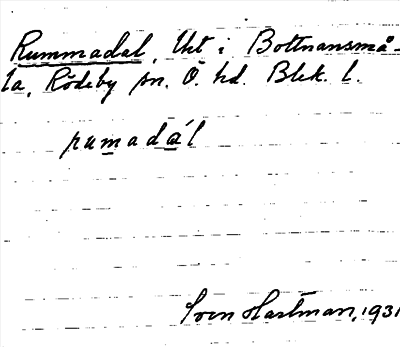 Rummadal, Uht i Bottnansmå-
la, Rödeby sn. Ö. hd. Blek. l.
rumadál
Sven Hartman, 1931